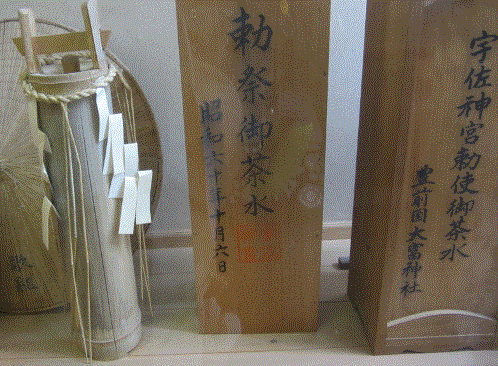 勅祭御茶水
昭和六十年十月六日
宇佐神宮勅使御茶水
豊前国大富神社